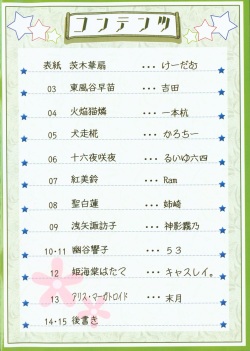 コンテンツ
表紙 茨木華扇 ・・・ けーだね
03 東風谷早苗 ・・・ 吉田
04 火焔猫燐 ・・・ 一本杭
05 犬走椛 ・・・ かろちー
06 十六夜咲夜 ・・・ るいゆ六四
07 紅美鈴 ・・・ Ram
08 聖白蓮 ・・・ 姉崎
09 洩矢諏訪子 ・・・ 神影霧乃
10・11 幽谷響子 ・・・ 53
12 姫海棠はたて ・・・ キャスレイ。
13 アリス・マーガトロイド ・・・ 末月
14・15 後書き